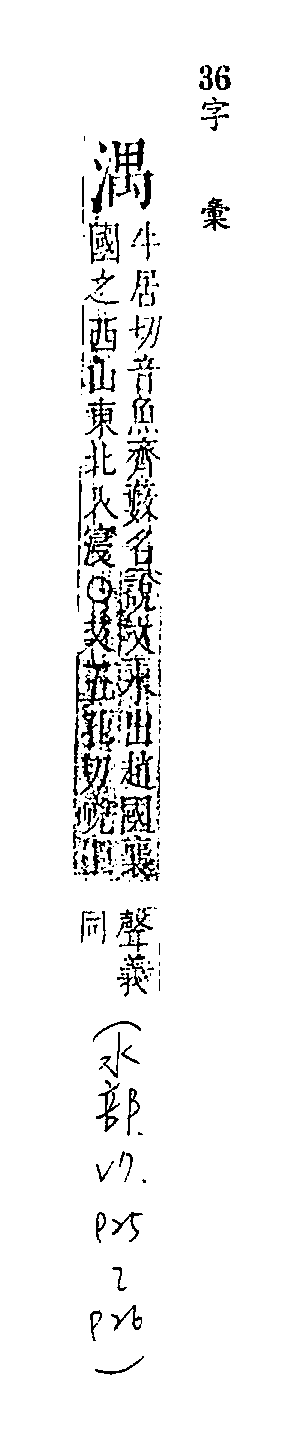 36字彙
湡
牛居切音魚齊藪名說文水出趙國襄
國之西山東北入寖○又五切
聲義
同
(水部.V7.P25~P26)